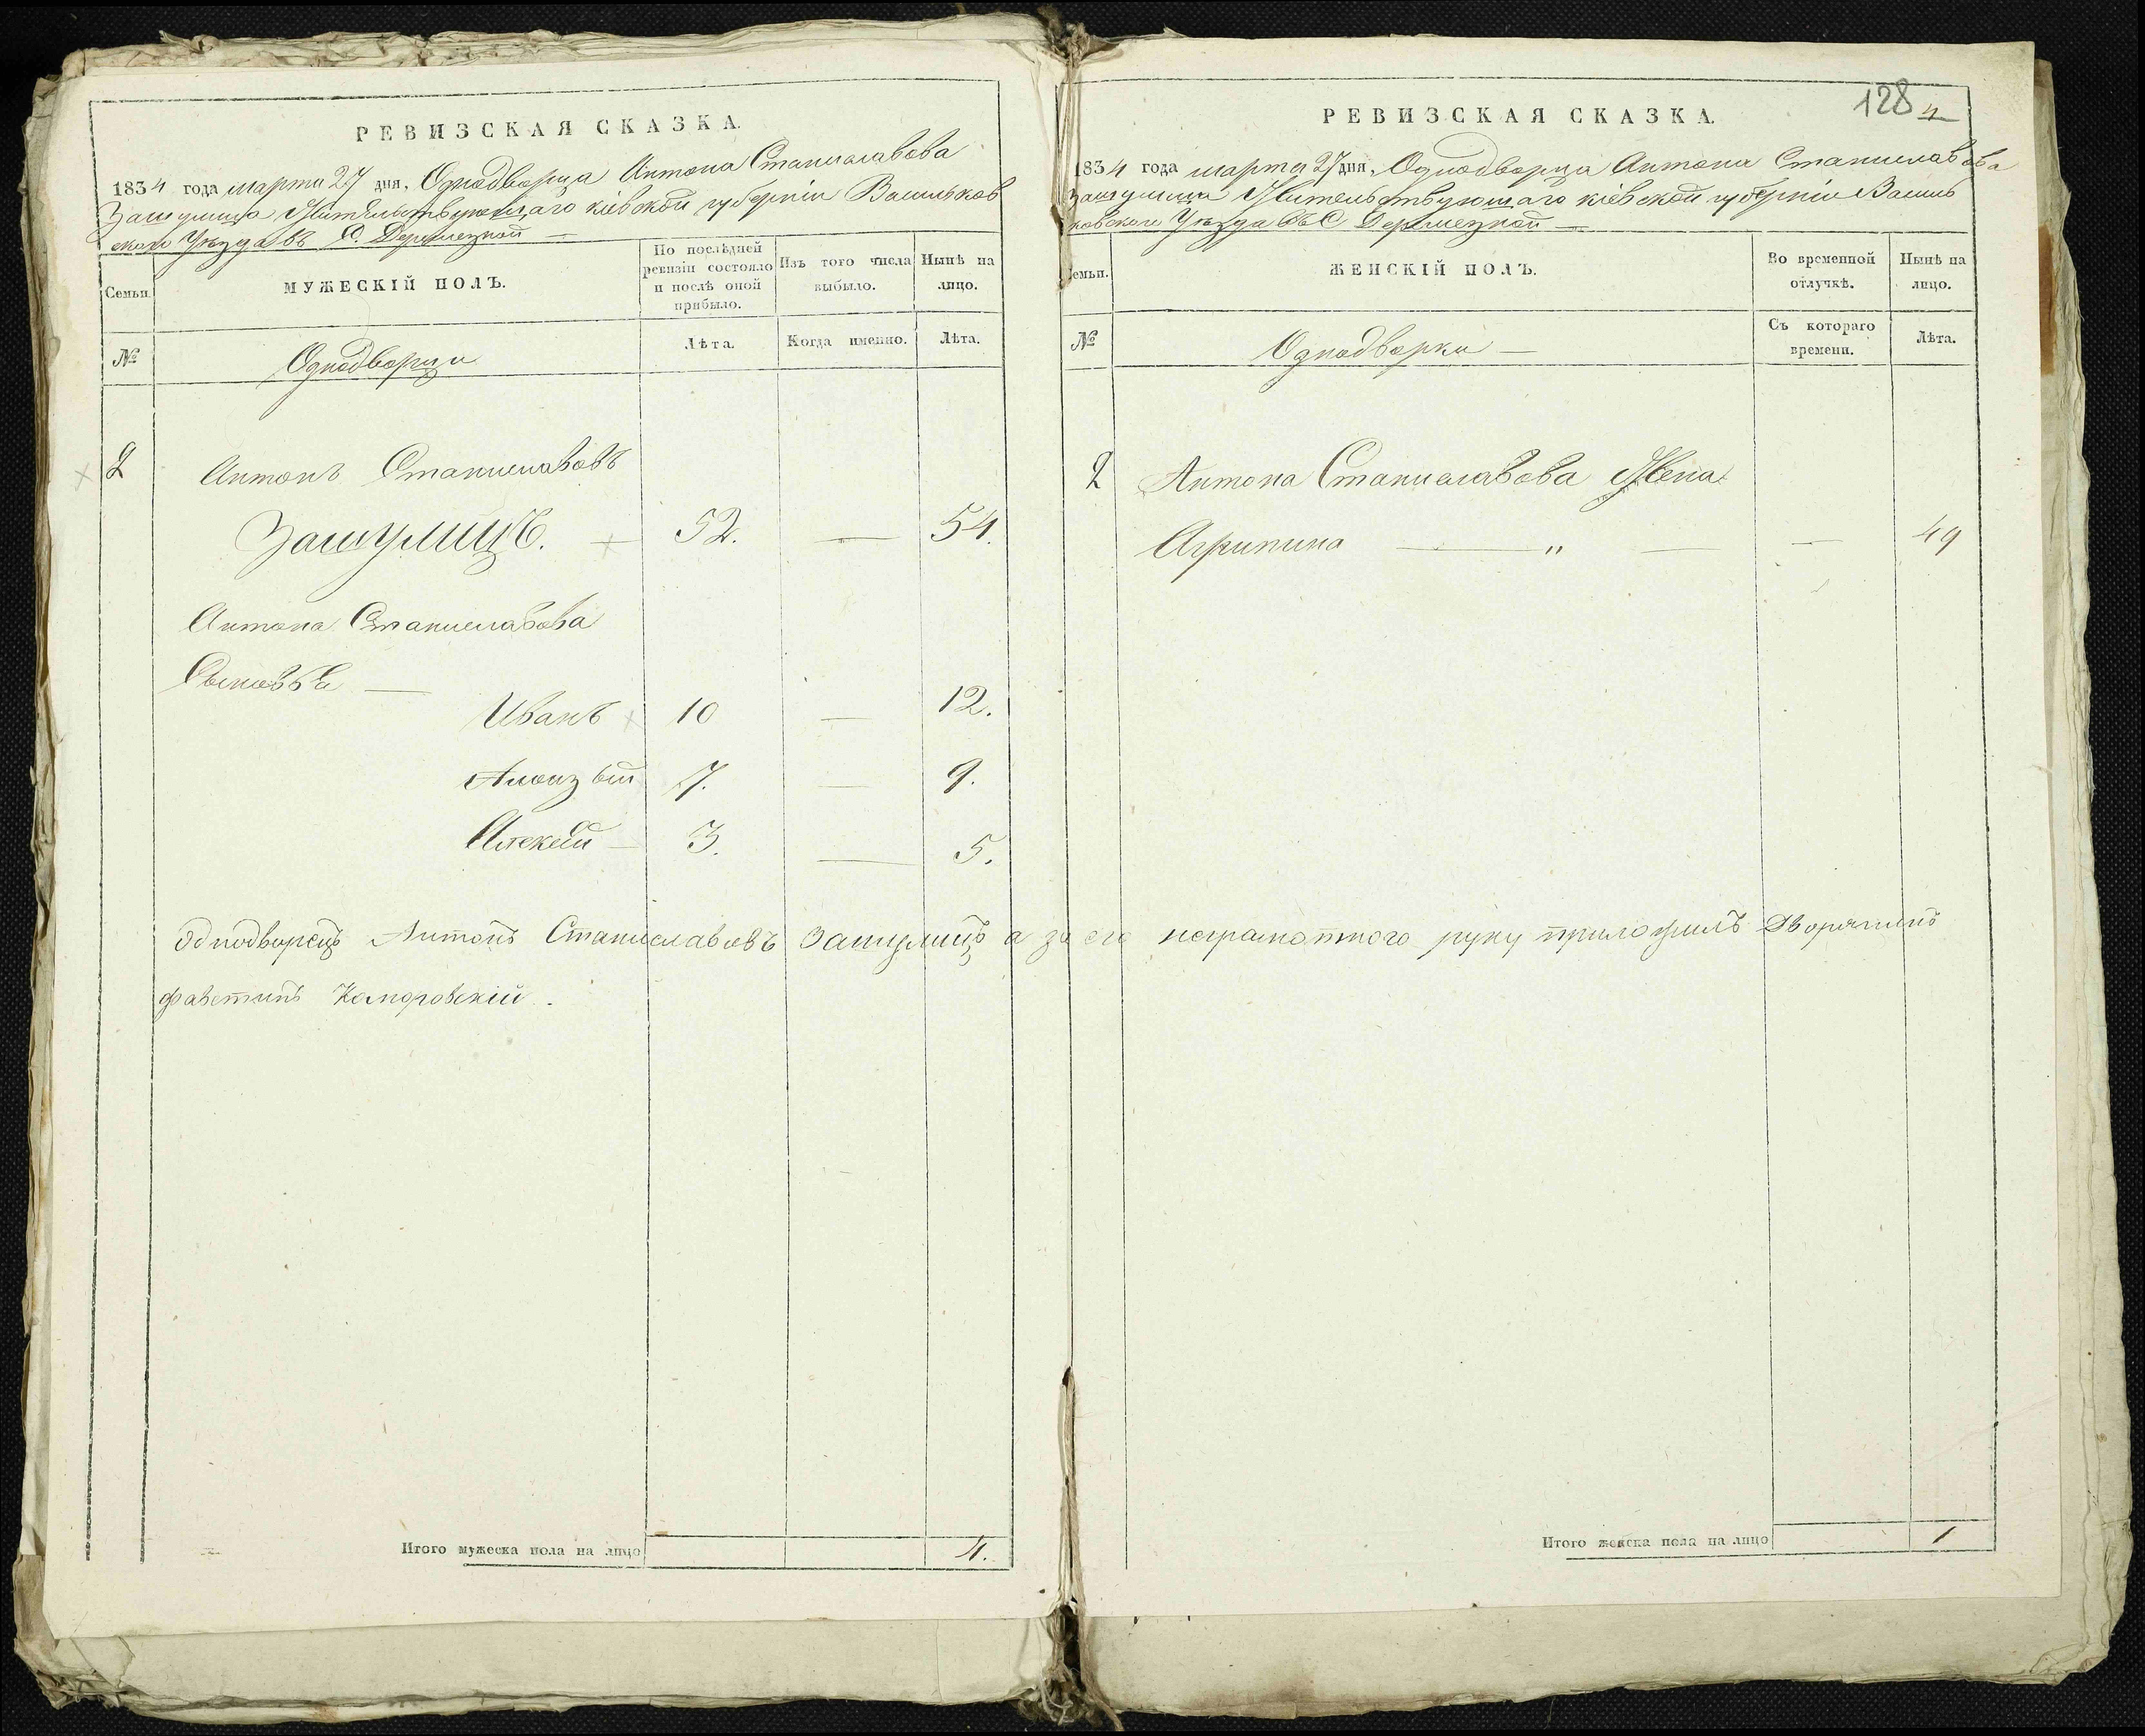 РЕВИЗСКАЯ СКАЗКА.
1834 года марта 27 дня. Однодворца Антона Станиславова
Зашулица Жительствующаго кіевской губерніи Васильков
скаго Уѣзда въ С. Дермезной —
Семьи.
МУЖЕСКІЙ ПОЛЪ.
По послѣдней ревизіи состояло и послѣ оной прибыло.
Изъ того числа выбыло.
Нынѣ на лицо.
№
Однодворци
Лѣта.
Когда именно.
Лѣта.
2 Антонъ Станиславовъ
Зашулицъ. — 52. — 54.
Антона Станиславова
Сыновья —
Иванъ 10 — 12.
Алоизый 7. — 9.
Алексей — 3. — 5.
Однодворецъ Антонъ Станиславовъ Зашулицъ а за его неграмотного руку приложилъ Дворянинъ
фавстинъ Коморовскій.
Итого мужеска пола на лицо 4.
128 4
РЕВИЗСКАЯ СКАЗКА.
1834 года марта 27 дня. Однодворца Антона Станиславова
Зашулица Жительствующаго кіевской губерніи Василь
ковскаго Уѣзда въ С Дермезной —
Семьи.
ЖЕНСКІЙ ПОЛЪ.
Во временной отлучкѣ.
Нынѣ на лицо.
№
Однодворки —
Съ котораго времени.
Лѣта.
2 Антона Станиславова Жена
Агрипина — " — — 49
Итого женска пола на лицо 1